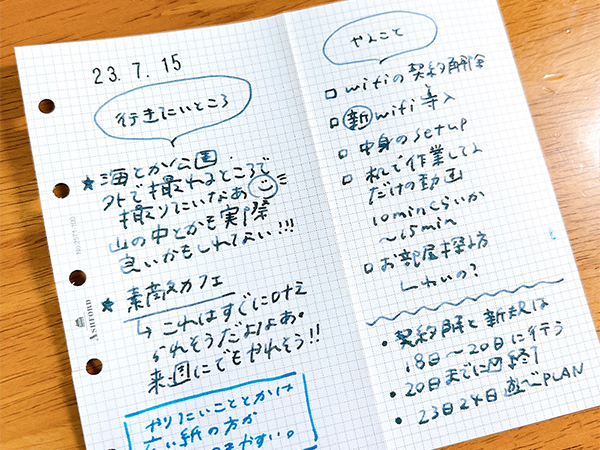 23.7.15
行きたいところ
★ 海とか公園
外で撮れるところで
撮りたいなあ
山の中とかも実際
良いかもしれない!!!
★ 素敵カフェ
↳ これはすぐに
れそうだよなあ。
来週にでもやれそう!!
やりたいこととかは
広い紙の方が
きやすい。
ASHFORD
やること
□ wifiの契約解除
□ 新wifi導入
□ 中身のsetup
□ 机で作業してる
だけの動画
10minくらいか
〜15min
□ お部屋探し方
・契約解除と新規は
18日〜20日に行う
・20日までに終了
・23日24日遊べPLAN